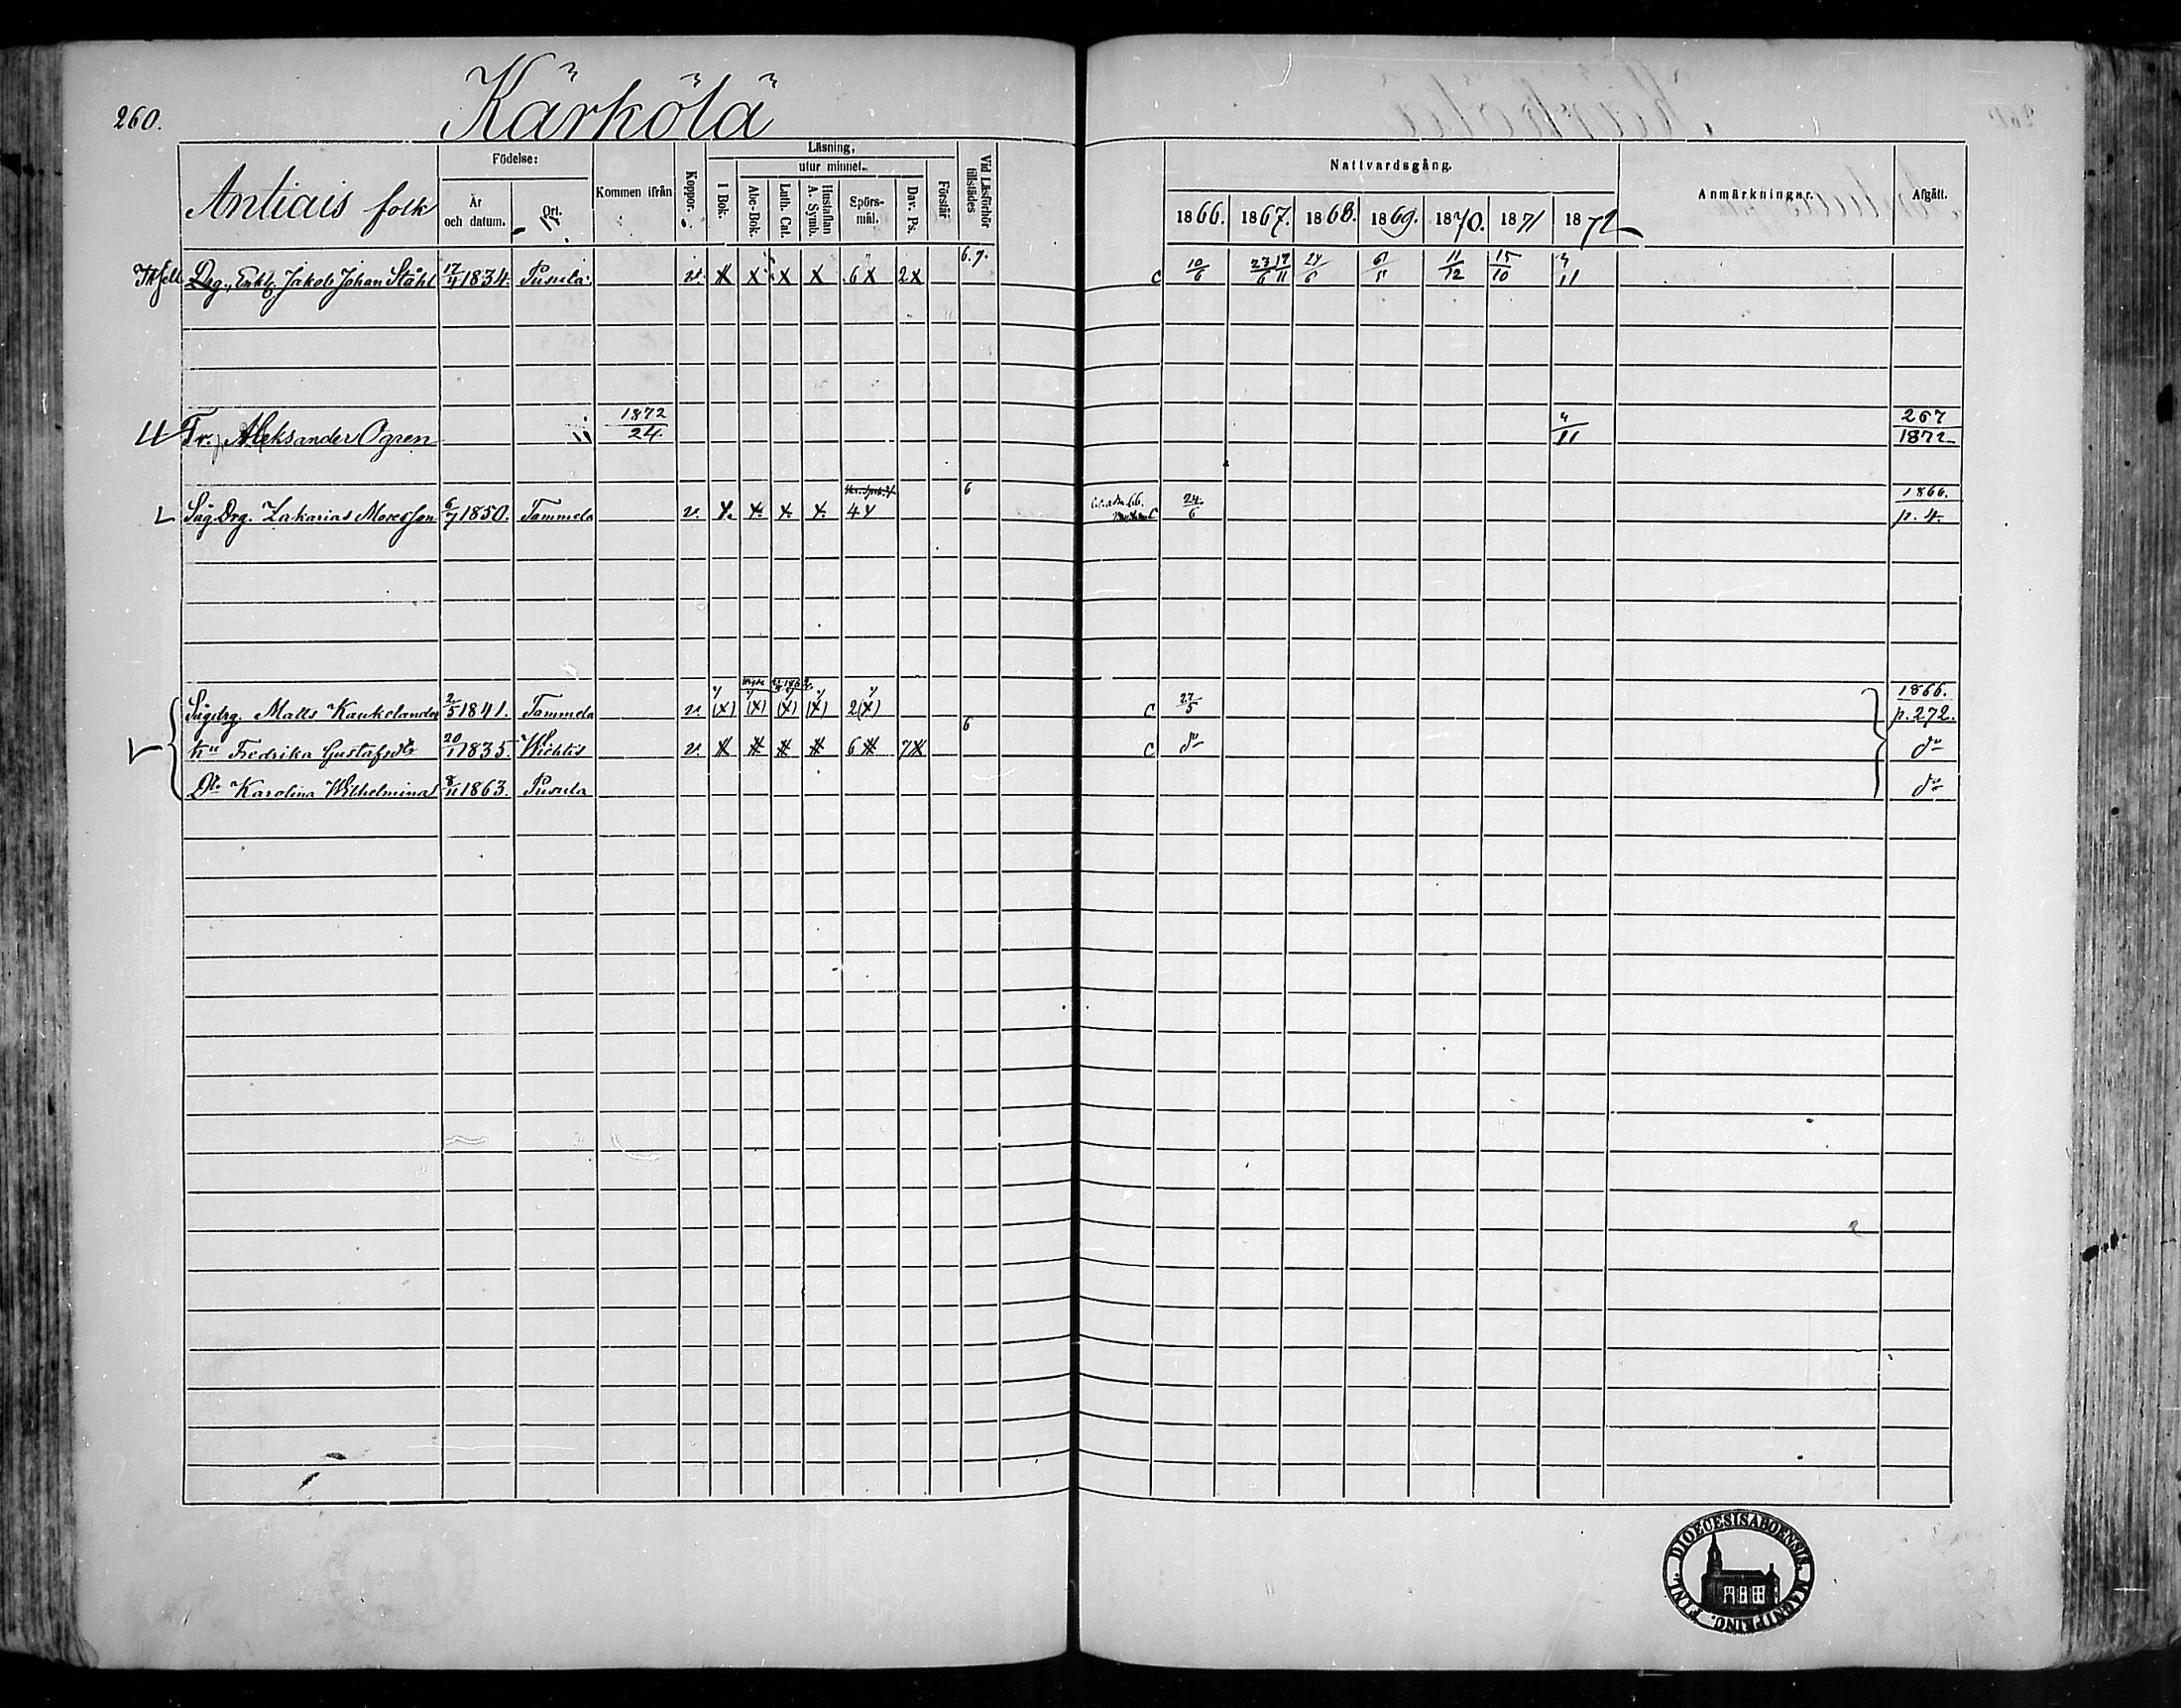 260.
Kärkölä
Antiais folk
Födelse:
År och datum.
Ort.
Kommen ifrån
Koppor.
Läsning,
utur minnet.
I Bok.
Abc-Bok.
Luth. Cat.
Hustaflan A. Symb.
Spörs-mål.
Dav. Ps.
Förstår
Vid Läsförhör tillstädes
Nattvardsgång.
1866. 1867. 1868. 1869. 1870. 1871 1872
Anmärkningar.
Afgått.
Drg., Enkl. Jakob Johan Ståhl 17/4 1834. Pusula v. X X X X 6X 2X 6.7. c 10/6 23/6 17/11 24/6 11/12 15/10 4/11
Fr. Aleksander Ogren 1872/24. 4/11 267/1872
Såg Drg. Zakarias Moresson 6/7 1850. Tammela v. 4 6 24/6 1866. p. 4.
Sågdrg. Matts Kaukelander 2/5 1841. Tammela v. (X) (X) (X) (X) 2(X) c 27/5 1866. p. 272.
hu Fredrika Gustafsdr 20/1 1835. Wichtis v. 6 7 6 c do do
Dr. Karolina Wilhelmina 8/11 1863. Pusula do
DIOECESIS ABOENSIS. MAGNI PRINC. FINL.